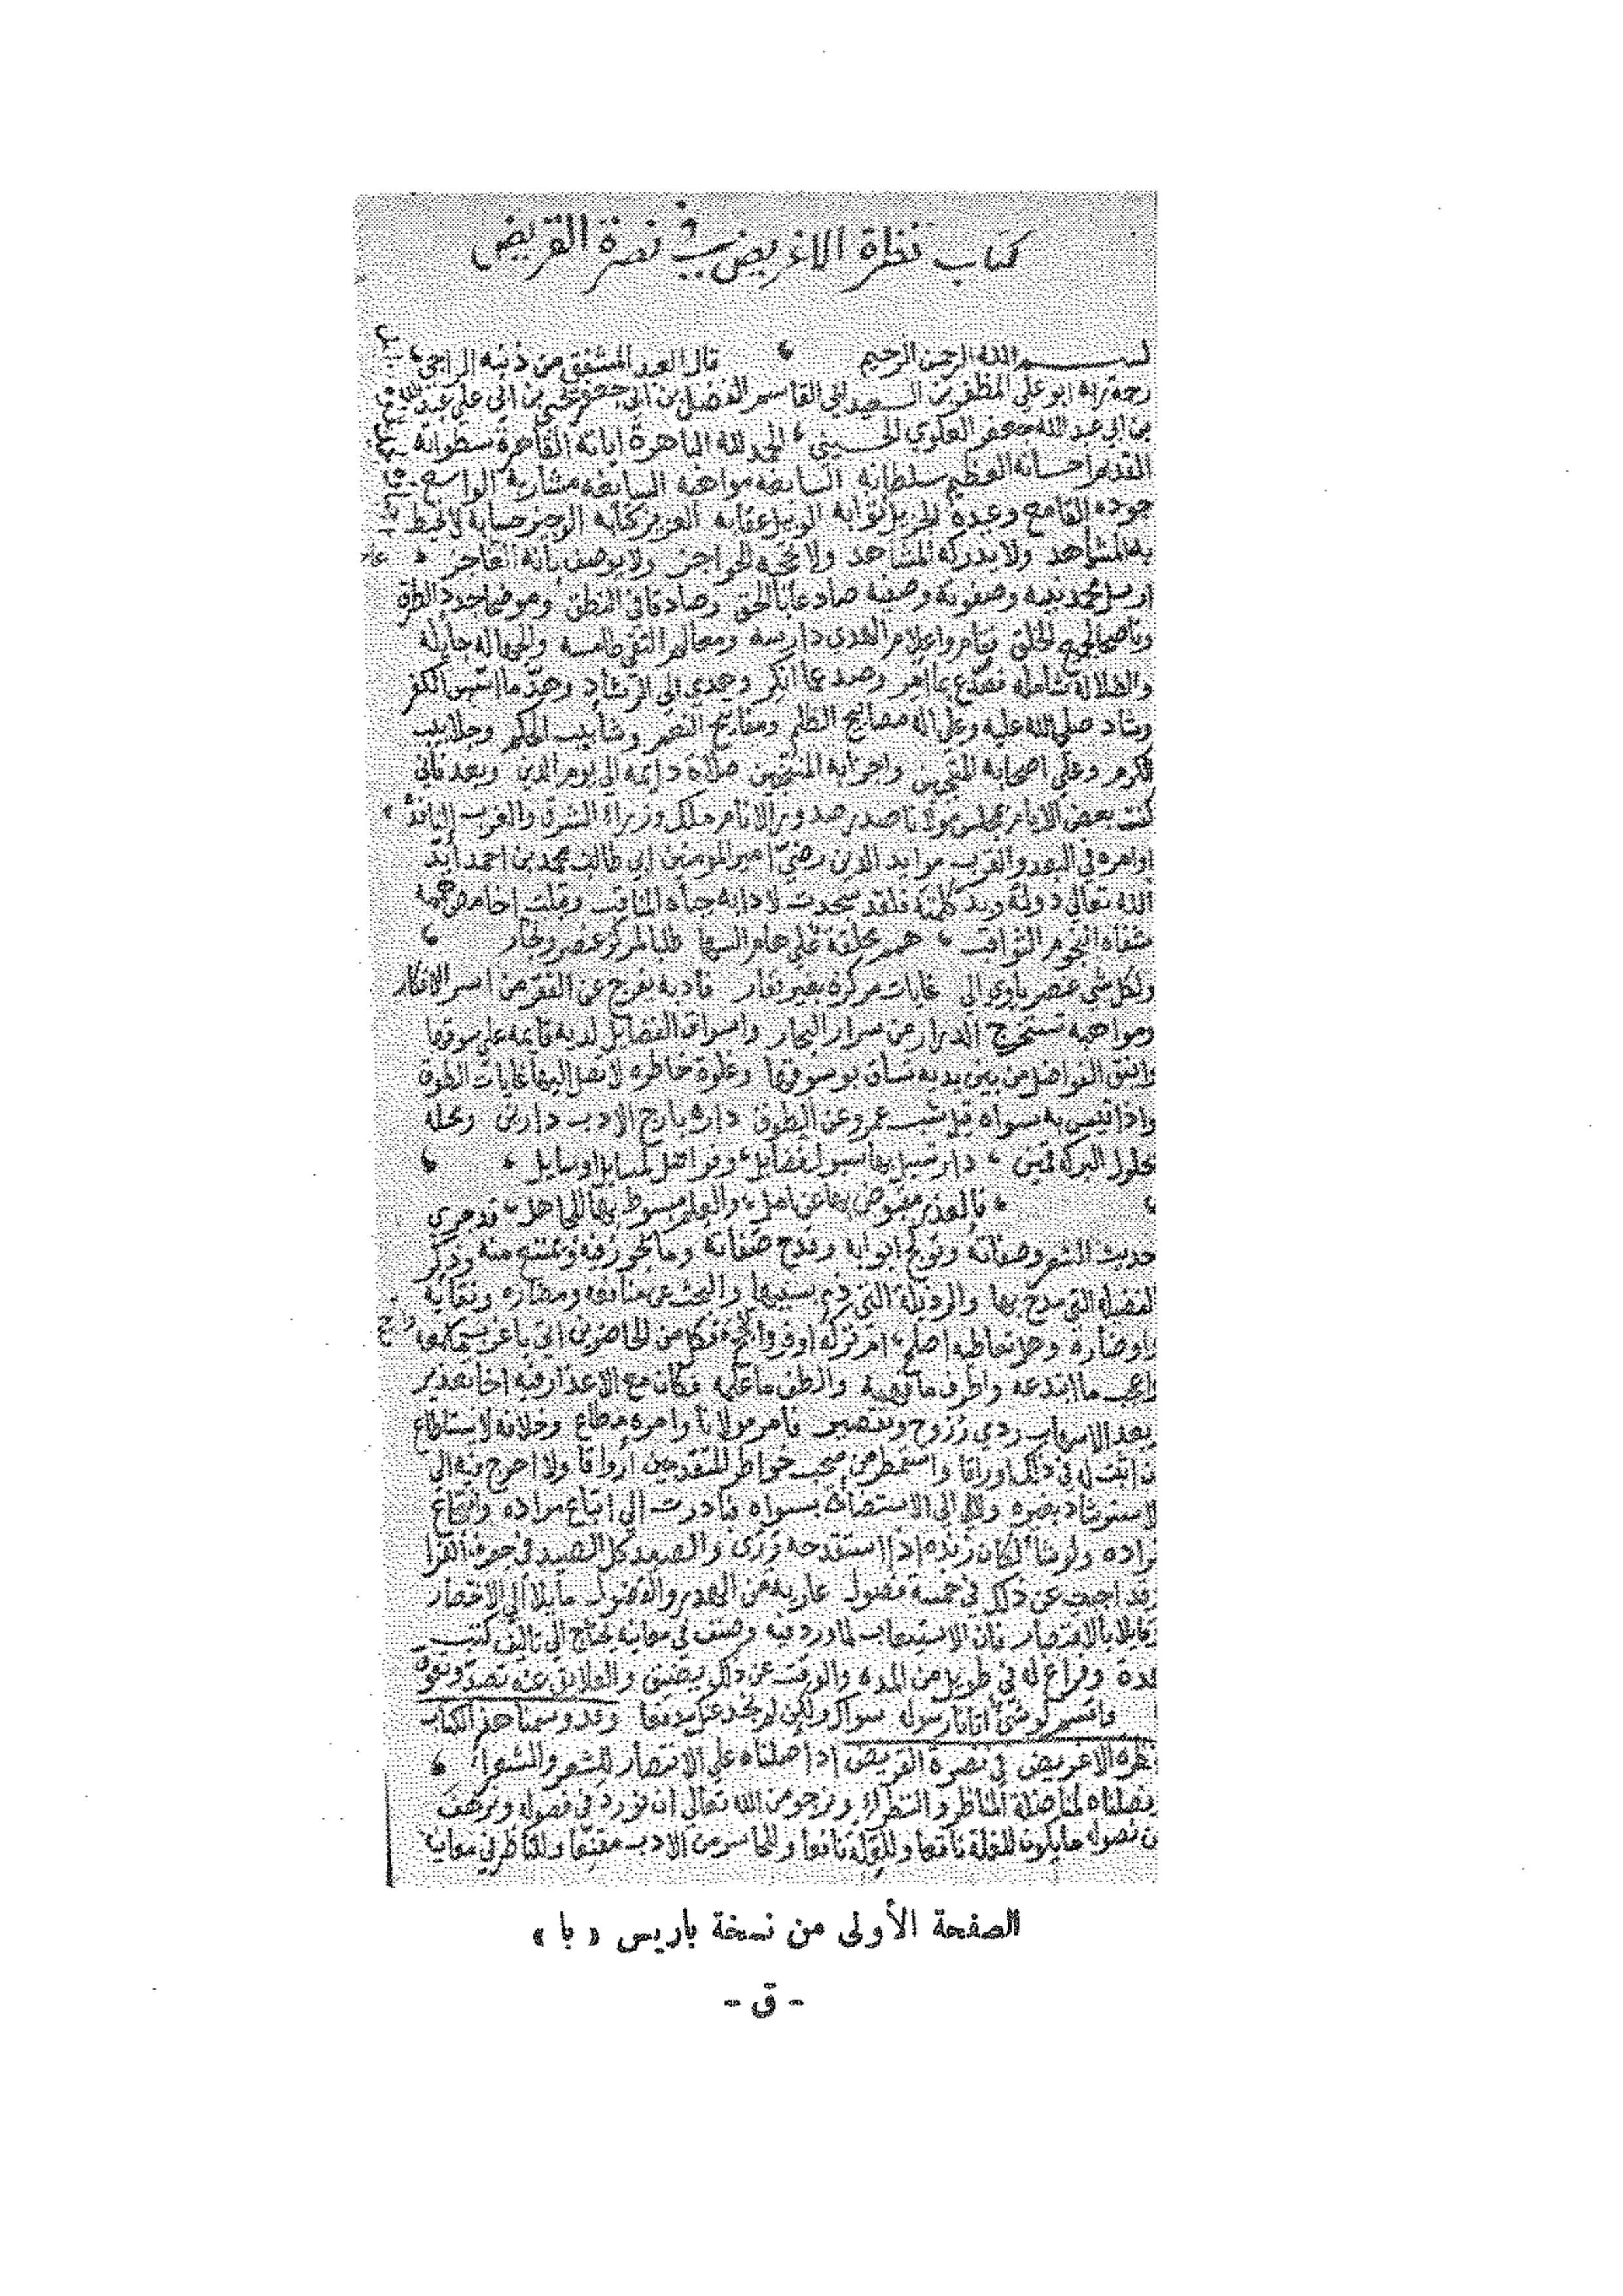 كتاب نظرة الاغريض في نصرة القريض
بسم الله الرحمن الرحيم قال العبد المشفق من ذنبه الراجي
رحمة ربه ابو علي المظفر بن السعيد ابي القاسم الفضل بن ابي جعفر يحيى بن ابي علي عبد الله
بن ابي عبد الله جعفر العلوي الحسيني الحمد لله الباهرة اياته القاهرة سطواته
القديم احسانه العظيم سلطانه السابغة مواهبه السايغة مشاربه الواسع
جوده القامع وعيده الجزيل ثوابه الوبيل عقابه العزيز كتابه الوجيز حسابه لا تحيط
به المشاهد ولا يدركه المشاهد ولا تحجبه الحواجز ولا يوصف بانه العاجز
ارسل محمد نبيه وصفوته وصفيه صادعا بالحق وصادقا في النطق وموضحا جدد الطرق
وناصحا لجميع الخلق واعلام الهدى دارسة ومعالم التقى طامسة والجهالة جايلة
والضلالة شاملة فصدع بما امر وصد عما انكر وهدى الى الرشاد وهد ما اسس الكفر
وشاد صلى الله عليه وعلى اله مصابيح الظلم ومفاتيح النصر وشآبيب الحكم وجلابيب
الكرم وعلى اصحابه المتقين واحزابه المنتجبين صلاة دايمة الى يوم الدين وبعد فاني
كنت بعض الايام بمجلس مولانا صدر صدور الانام ملك وزراء الشرق والغرب النافذة
اوامره في البعد والقرب مويد الدين رضي امير المومنين ابي طالب محمد بن احمد ايد
الله تعالى دولته وبد كلمته فلقد سجدت لادابه جباه المناقب وقبلت اخامص همه
شفاه النجوم الثواقب همم محلقة على هام السها طلبا لمركز عنصر ونجار
ولكل شي عنصر ياوي الى غايات مركزه بغير نفار فادبه يفرج عن الفقر من اسر الافكار
ومواهبه تستخرج الدرر من سرار البحار واسواق الفضايل لديه قايمة على سوقها
واينق الفواضل من بين يديه تساق بوسوقها وغلوة خاطره لا تصل اليها غايات
واذا قيس به سواه قيل شب عمرو عن الطوق داره بارج الادب دارين ومحله
بحلول البركة قمين دار تسيل بها سيول فضايل وفواضل لمسايل او سايل
فالعذر مقبوض بها عن امل والعلم مبسوط بها للجاهل قد جرى
حديث الشعر وصفاته وتولج ابوابه وقدح صفاته وما يجوز فيه ويمتنع منه وذكر
الفضيلة التي مدح بها والرذيلة التي ذم بسببها والبحث عن منافعه ومضاره
واوضاره وهل تعاطيه اصلح ام تركه اوفر وارجح فكل من الحاضرين اتى باغرب ما سمعه
واعجب ما ابتدعه واطرف ما وعيه والطف ما
بعد الاسهاب ردي رزوح وتقصير فامر مولانا وامره مطاع وخلافه لا يستطاع
ان اثبت له في ذلك اوراقا واستمطر من سحب خواطر المتقدمين ارواقا ولا احوج فيه الى
الاسترشاد بغيره ولا الى الاستضاءة بسواه فبادرت الى اتباع مراده وانتجاع
مراده ولو شاء لكان زنده اذا استقدحه ورى والصيد كل الصيد في جوف الفرا
وقد اجبت عن ذلك في خمسة فصول عارية من الهذر والفضول مايلا الى الاختصار
وقايلا بالاقتصار فان الاستيعاب لما ورد فيه وصنف في معانيه يحتاج الى تاليف كتب
عدة وفراغ له في طويل من المدة والوقت عن ذلك يضيق والعلايق عنه تصد وتعوق
واقسم لو شيء اتانا رسوله سواك ولكن لم نجد عنك مدفعا وقد وسمنا هذا الكتاب
نظرة الاغريض في نصرة القريض اذ اصلناه على الانتصار للشعر والشعراء
وفصلناه لمناضلة المناظر والنظراء ونرجو من الله تعالى ان نورد في فصوله ونرهف
من نصوله ما يكون للغلة ناقعا وللعلة نافعا وللخاسر من الادب مقنعا وللناظر في معانيه
الصفحة الأولى من نسخة باريس « با »
- ق -